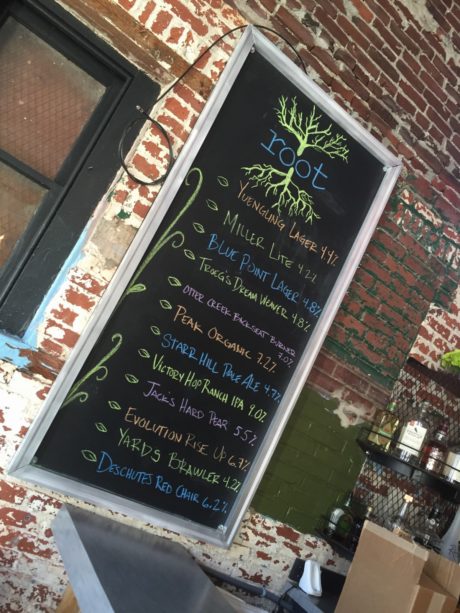 root
YUENGLING LAGER 4.4%
MILLER LITE 4.2%
BLUE POINT LAGER 4.8%
TROEG'S DREAM WEAVER 4.8%
OTTER CREEK BACKSEAT BURNER
7.0%
PEAK ORGANIC 7.2%
STARR HILL PALE ALE 4.7%
VICTORY HOP RANCH IPA 9.0%
JACK'S HARD PEAR 5.5%
EVOLUTION RISE UP 6.7%
YARDS BRAWLER 4.2%
DESCHUTES RED CHAIR 6.2%